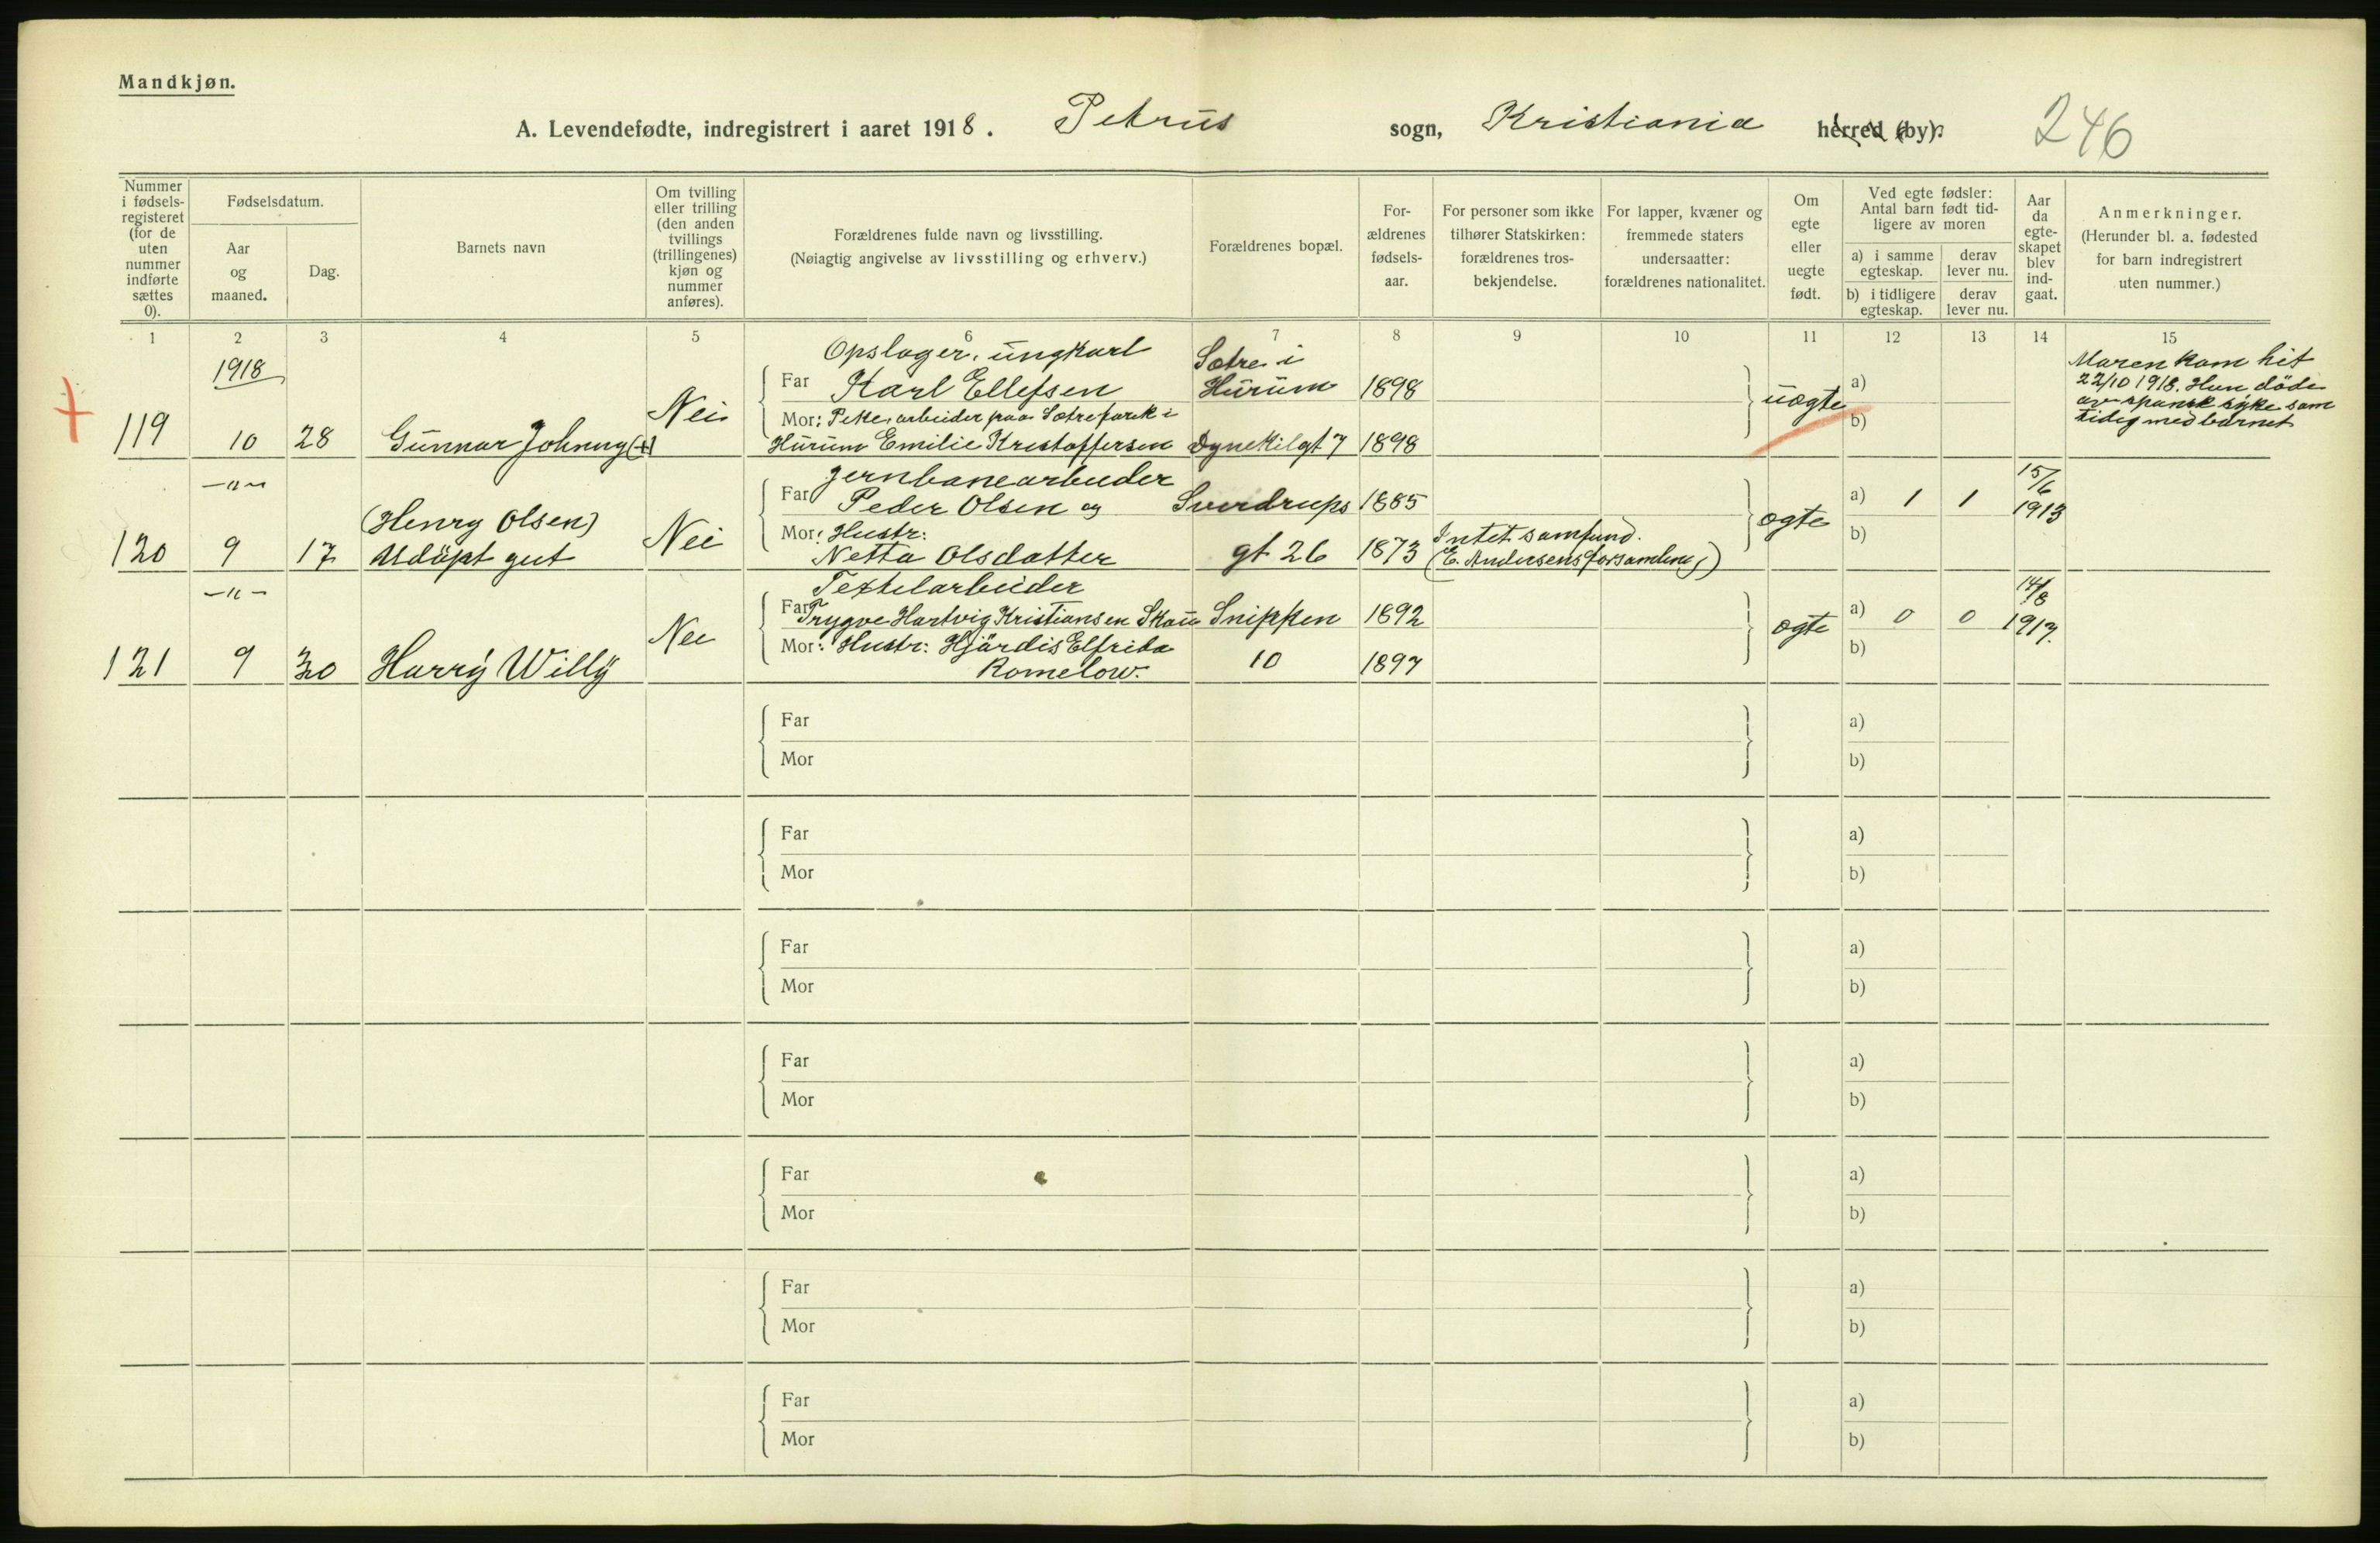 Mandkjøn.
A. Levendefødte, indregistrert i aaret 1918. Petrus sogn, Kristiania herred (by).
246
Nummer i fødselsregisteret (for de uten nummer indførte sættes 0).
Fødselsdatum.
Aar og maaned.
Dag.
Barnets navn
Om tvilling eller trilling (den anden tvillings (trillingenes) kjøn og nummer anføres).
Forældrenes fulde navn og livsstilling.
(Nøiagtig angivelse av livsstilling og erhverv.)
Forældrenes bopæl.
Forældrenes fødselsaar.
For personer som ikke tilhører Statskirken: forældrenes trosbekjendelse.
For lapper, kvæner og fremmede staters undersaatter: forældrenes nationalitet.
Om egte eller uegte født.
Ved egte fødsler: Antal barn født tidligere av moren
a) i samme egteskap.
derav lever nu.
b) i tidligere egteskap.
derav lever nu.
Aar da egteskapet blev indgaat.
Anmerkninger.
(Herunder bl. a. fødested for barn indregistrert uten nummer.)
1 2 3 4 5 6 7 8 9 10 11 12 13 14 15
1918
119 10 28 Gunnar Johnny (+) Nei
Opslager, ungkarl
Far Karl Ellefsen
Sætre i Hurum 1898
Mor: Pike, arbeider paa Sætre fabrik i
Hurum Emilie Kristoffersen Dynekilgt 7 1898
uægte
a)
b)
Moren kom hit
22/10 1918. Hun döde
av spansk syke sam
tidig med barnet
—"—
120 9 17 (Henry Olsen)
Udöpt gut Nei
Jernbanearbeider
Far Peder Olsen og Sverdrups 1885
Mor: Hustr:
Netta Olsdatter gt 26 1873
Intet samfund.
(E. Andersens forsamling)
ægte
a) 1 1
b)
15/6
1913
—"—
121 9 30 Harry Willy Nei
Textilarbeider
Far Trygve Hartvig Kristiansen Skau Snippen 1892
Mor: Hustr: Hjördis Elfrida
Romelow. 10 1897
ægte
a) 0 0
b)
14/8
1917.
Far
Mor
a)
b)
Far
Mor
a)
b)
Far
Mor
a)
b)
Far
Mor
a)
b)
Far
Mor
a)
b)
Far
Mor
a)
b)
Far
Mor
a)
b)